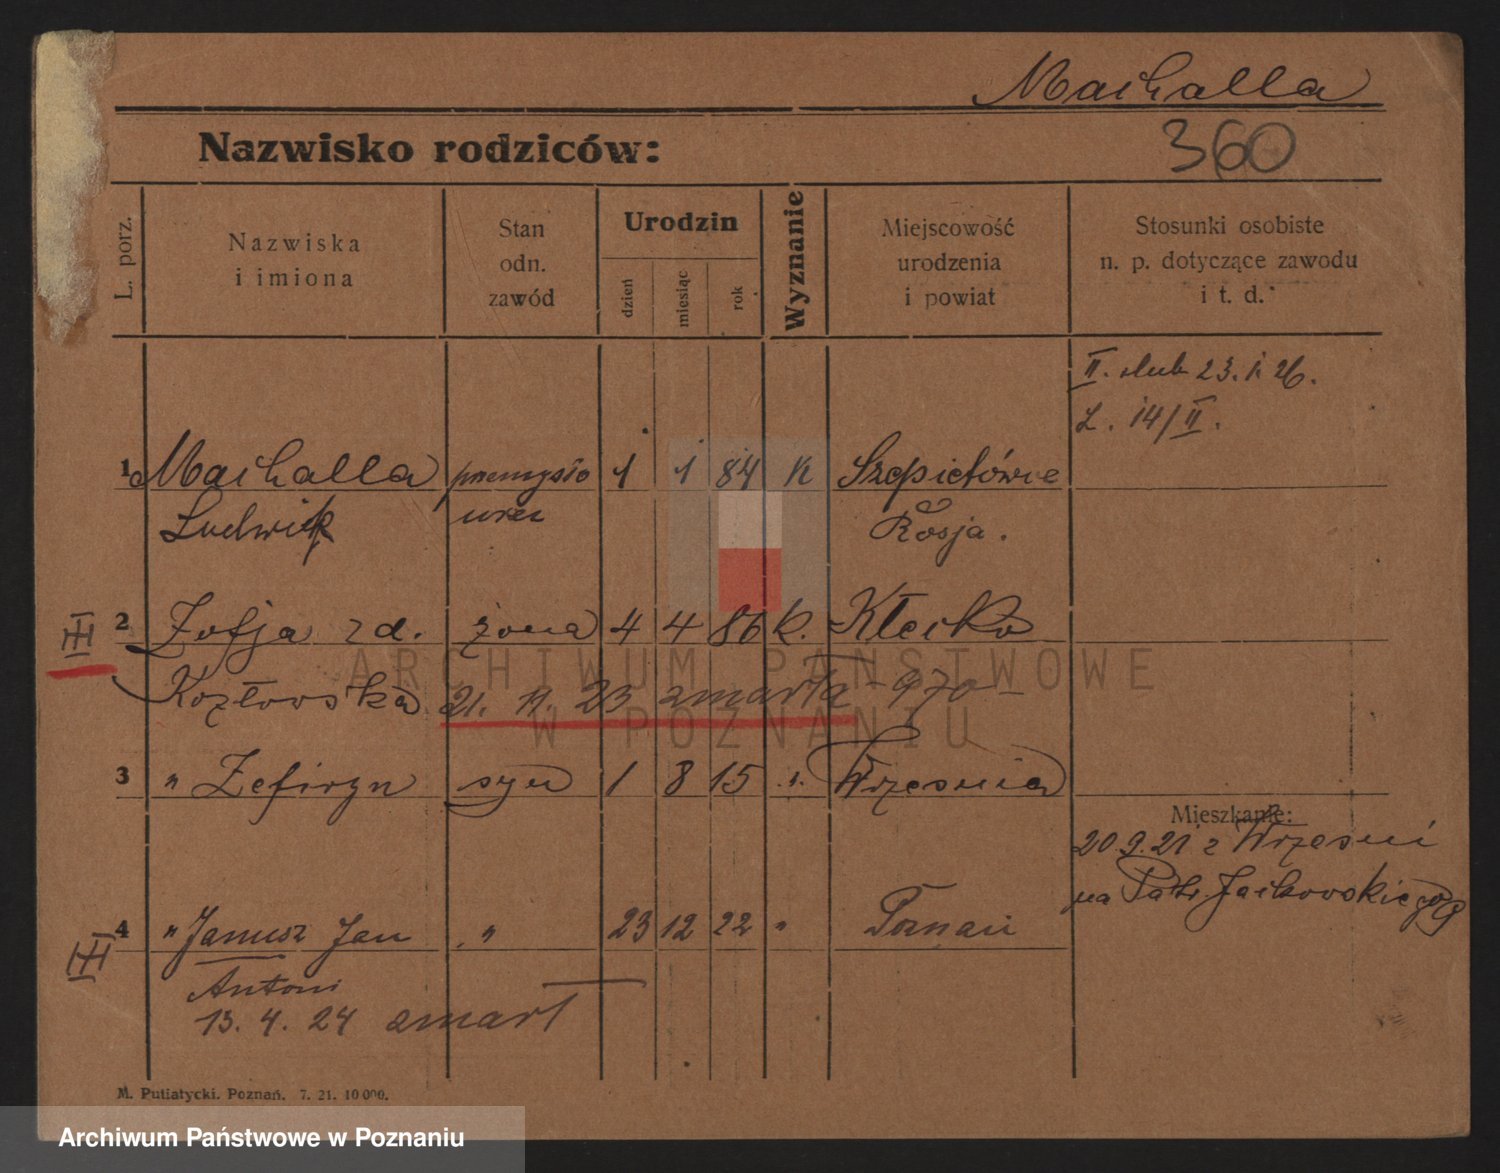 Machalla
Nazwisko rodziców:
360
L. porz.
Nazwiska
i imiona
Stan
odn.
zawód
Urodzin
dzień
miesiąc
rok
Wyznanie
Miejscowość
urodzenia
i powiat
Stosunki osobiste
n. p. dotyczące zawodu
i t. d.
II. ślub 23. 1. 26.
L. 14/II.
1 Machalla przemysło 1 1 84 k Szepietówce
Ludwik wiec Rosja.
III 2 Zofja z d. żona 4 4 86 k. Kłecko
Kozłowska 21. 11. 23 zmarła - 970 -
ARCHIWUM PAŃSTWOWE
W POZNANIU
3 " Zefiryn syn 1 8 15 " Września
Mieszkanie:
20.9.21 z Wrześni
na Patr. Jackowskiego
III 4 " Janusz Jan " 23 12 22 " Poznań
Antoni
13. 4. 24 zmarł
M. Putiatycki. Poznań. 7. 21. 10 000.
Archiwum Państwowe w Poznaniu